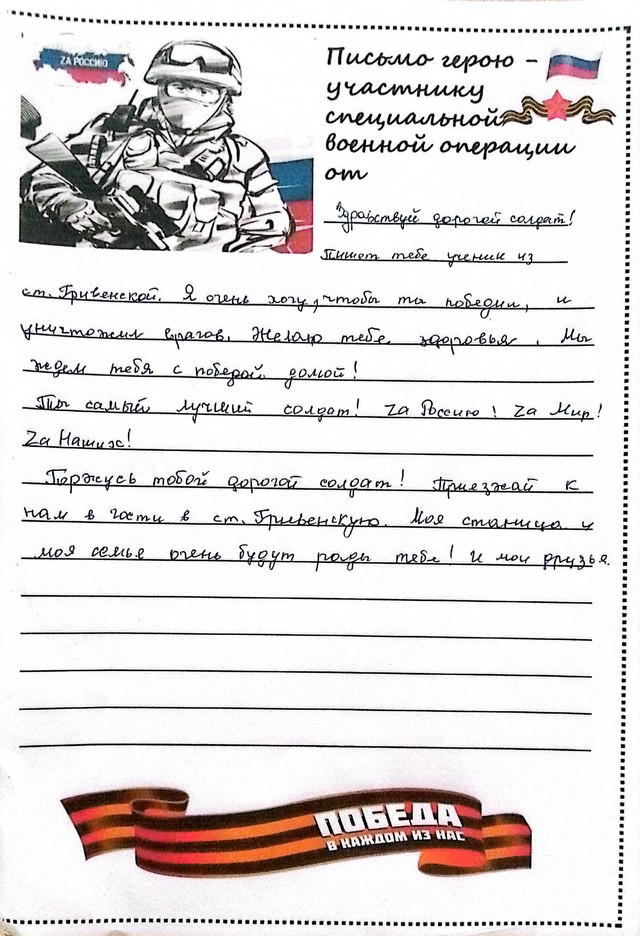 ZА РОССИЮ
Письмо герою -
участнику
специальной
военной операции
от
Здравствуй дорогой солдат!
Пишет тебе ученик из
ст. Гривенской. Я очень хочу, чтобы ты победил, и
уничтожил врагов. Желаю тебе здоровья. Мы
ждем тебя с победой домой!
Ты самый лучший солдат! Zа Россию! Zа Мир!
Zа Наших!
Горжусь тобой дорогой солдат! Приезжай к
нам в гости в ст. Гривенскую. Моя станица и
моя семья очень будут рады тебе! И мои друзья.
ПОБЕДА
В КАЖДОМ ИЗ НАС